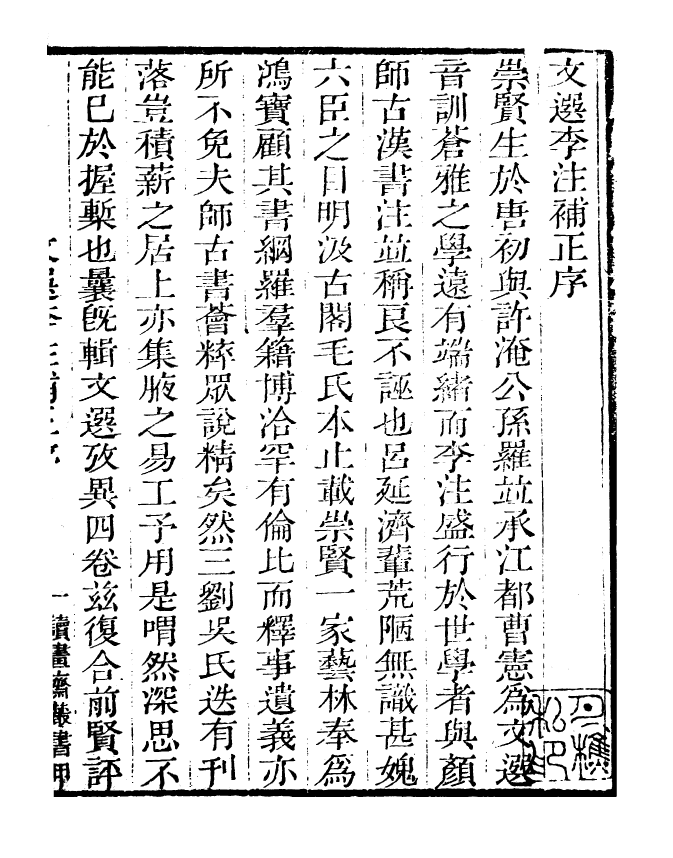 文選李注補正序
崇賢生於唐初與許淹公孫羅並承江都曹憲爲文選
音訓蒼雅之學遠有端緒而李注盛行於世學者與顏
師古漢書注並稱良不誣也呂延濟輩荒陋無識甚媿
六臣之目明汲古閣毛氏本止載崇賢一家藝林奉爲
鴻寶顧其書網羅羣籍博洽罕有倫比而釋事遺義亦
所不免夫師古書薈粹眾說精矣然三劉吳氏迭有刊
落豈積薪之居上亦集腋之易工予用是喟然深思不
能已於握槧也曩旣輯文選攷異四卷玆復合前賢評
文選李注補正序
一
讀畫齋叢書甲